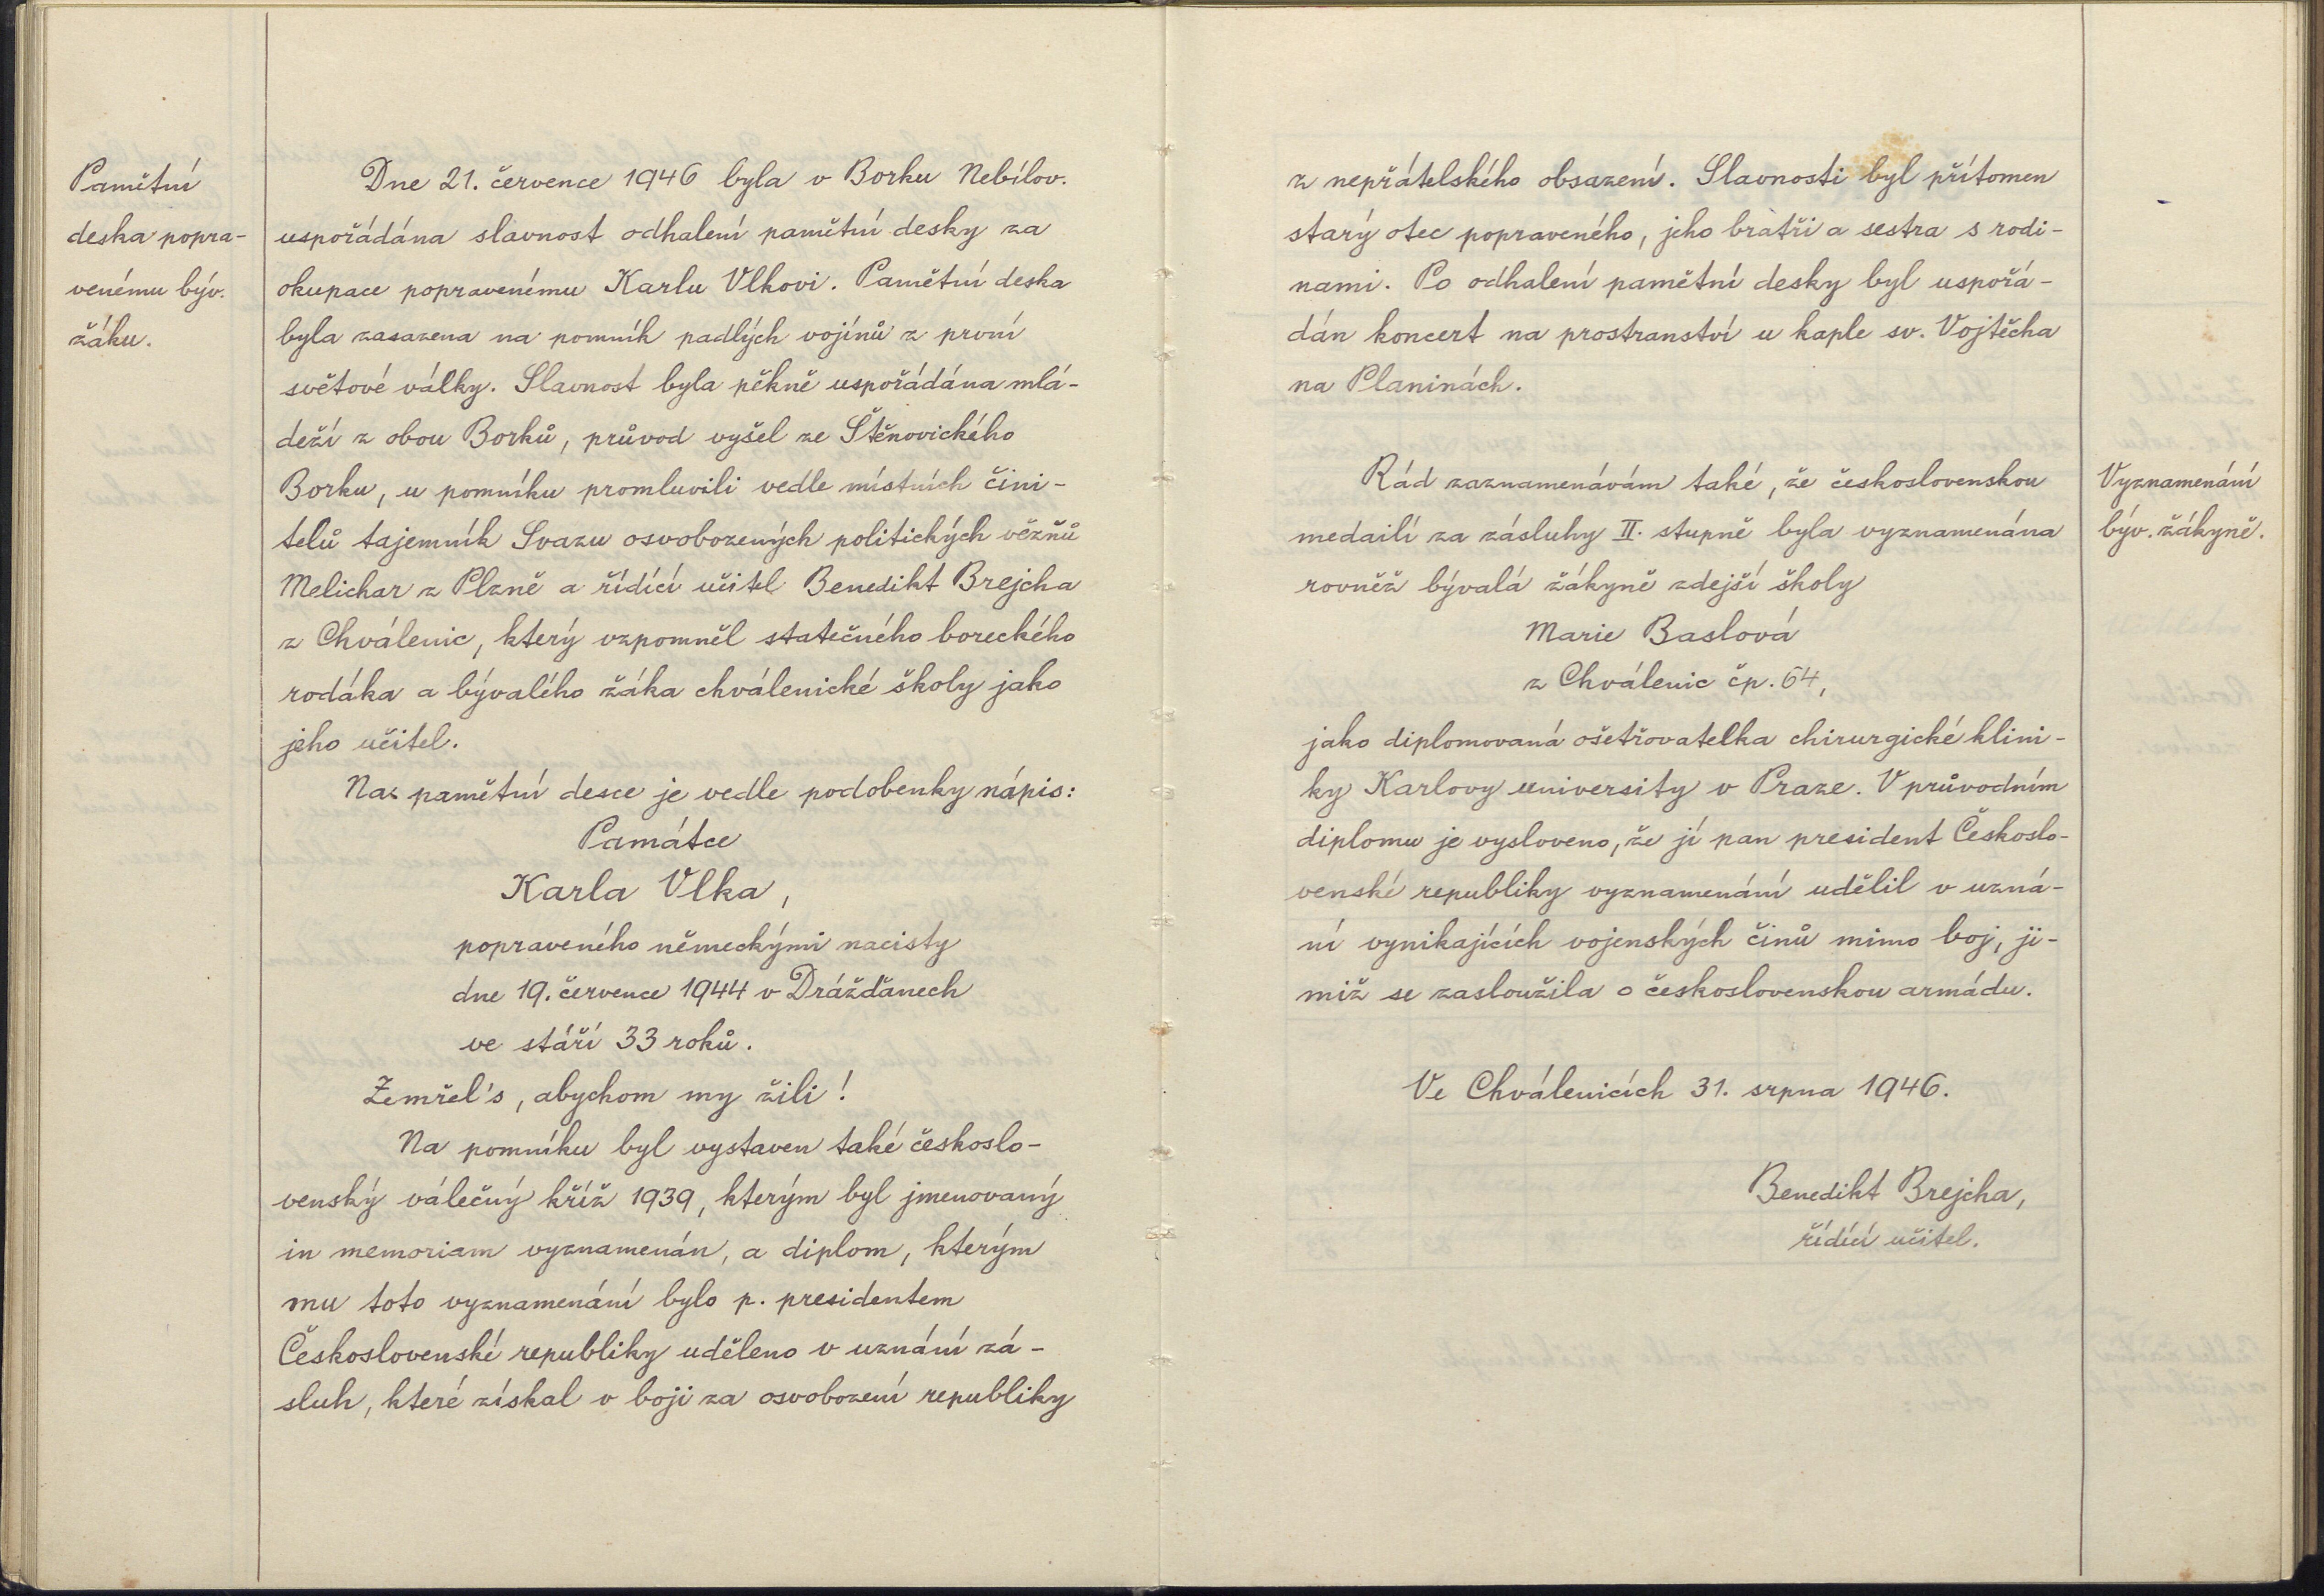 Pamětní
deska popra-
venému býv.
žáku.
Dne 21. července 1946 byla v Borku Nebílov.
uspořádána slavnost odhalení pamětní desky za
okupace popravenému Karlu Vlkovi. Pamětní deska
byla zasazena na pomník padlých vojínů z první
světové války. Slavnost byla pěkně uspořádána mlá-
deží z obou Borků, průvod vyšel ze Štěnovického
Borku, u pomníku promluvili vedle místních čini-
telů tajemník Svazu osvobozených politických vězňů
Melichar z Plzně a řídící učitel Benedikt Brejcha
z Chválenic, který vzpomněl statečného boreckého
rodáka a bývalého žáka chválenické školy jako
jeho učitel.
Na pamětní desce je vedle podobenky nápis:
Památce
Karla Vlka,
popraveného německými nacisty
dne 19. července 1944 v Drážďanech
ve stáří 33 roků.
Zemřel's, abychom my žili!
Na pomníku byl vystaven také českoslo-
venský válečný kříž 1939, kterým byl jmenovaný
in memoriam vyznamenán, a diplom, kterým
mu toto vyznamenání bylo p. presidentem
Československé republiky uděleno v uznání zá-
sluh, které získal v boji za osvobození republiky
z nepřátelského obsazení. Slavnosti byl přítomen
starý otec popraveného, jeho bratři a sestra s rodi-
nami. Po odhalení pamětní desky byl uspořá-
dán koncert na prostranství u kaple sv. Vojtěcha
na Planinách.
Rád zaznamenávám také, že československou
medailí za zásluhy II. stupně byla vyznamenána
rovněž bývalá žákyně zdejší školy
Marie Baslová
z Chválenic čp. 64,
jako diplomovaná ošetřovatelka chirurgické klini-
ky Karlovy university v Praze. V průvodním
diplomu je vysloveno, že jí pan president Českoslo-
venské republiky vyznamenání udělil v uzná-
ní vynikajících vojenských činů mimo boj, ji-
miž se zasloužila o československou armádu.
Ve Chválenicích 31. srpna 1946.
Benedikt Brejcha,
řídící učitel.
Vyznamenání
býv. žákyně.